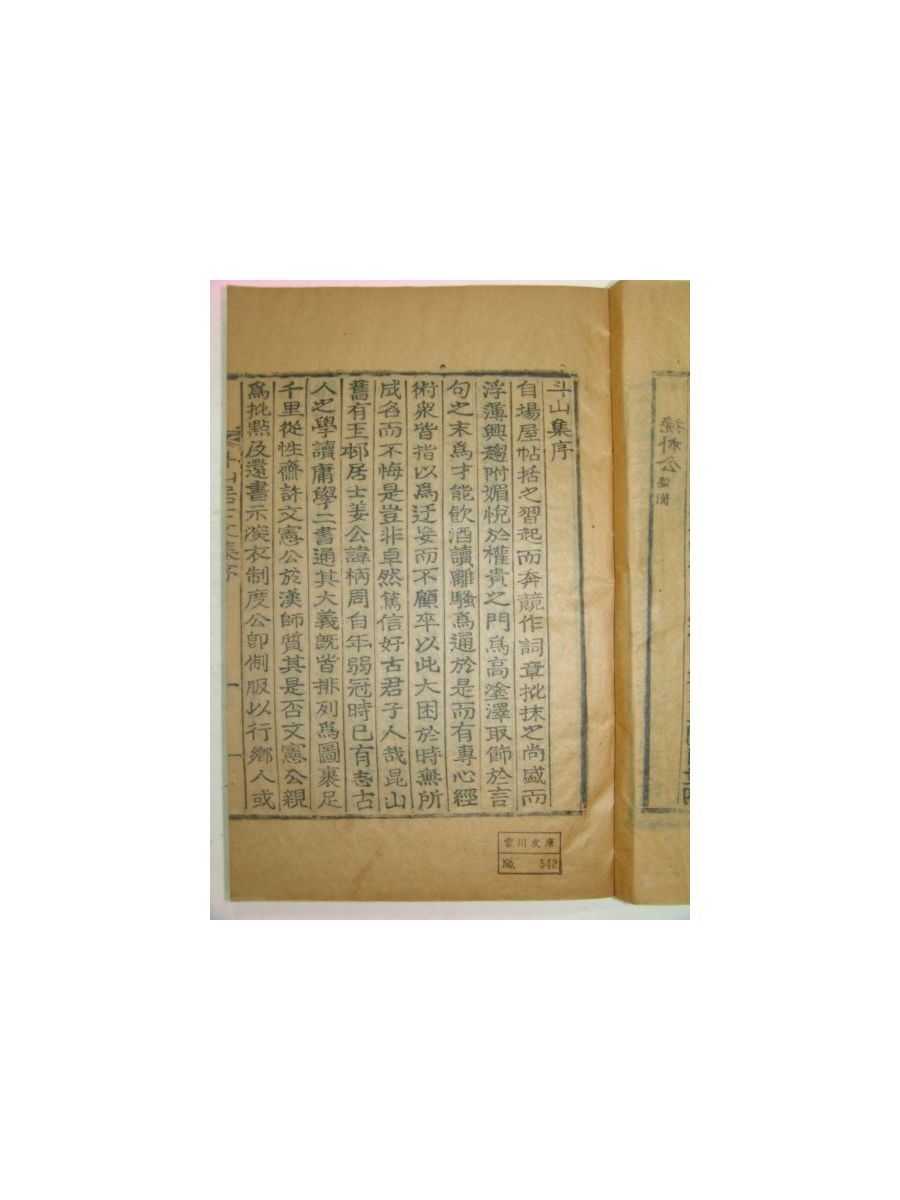 斗山集序
自場屋帖括之習起而奔競作詞章批抹之尚盛而
浮薄興趨附媚悅於權貴之門爲高塗澤取飾於言
句之末爲才能飮酒讀離騷爲通於是而有專心經
術衆皆指以爲迂妄而不顧卒以此大困於時無所
成名而不悔是豈非卓然篤信好古君子人哉昆山
舊有玉邨居士姜公諱柄周自年弱冠時已有志古
人之學讀庸學二書通其大義旣皆排列爲圖裹足
千里從性齋許文憲公於漢師質其是否文憲公親
爲批點及還書示深衣制度公卽制服以行鄕人或
斗山居士文集序
一
雲川文庫
No. 542